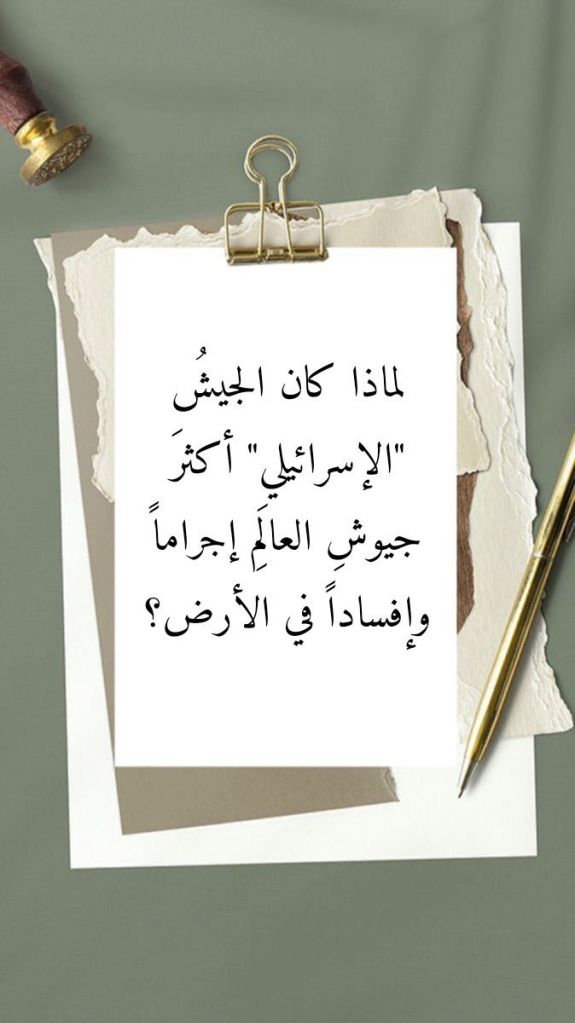 لماذا كان الجيشُ
"الإسرائيلي" أكثرَ
جيوشِ العالَمِ إجراماً
وإفساداً في الأرض؟